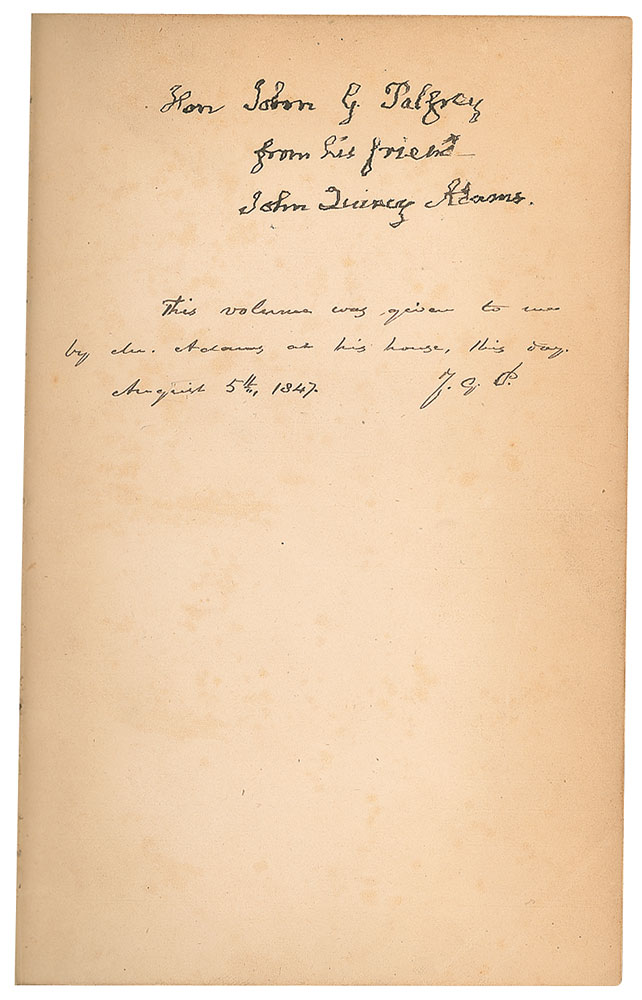 Hon John G. Palfrey
from his friend
John Quincy Adams.
This volume was given to me
by Mr. Adams at his house, this day.
August 5th, 1847. J. G. P.